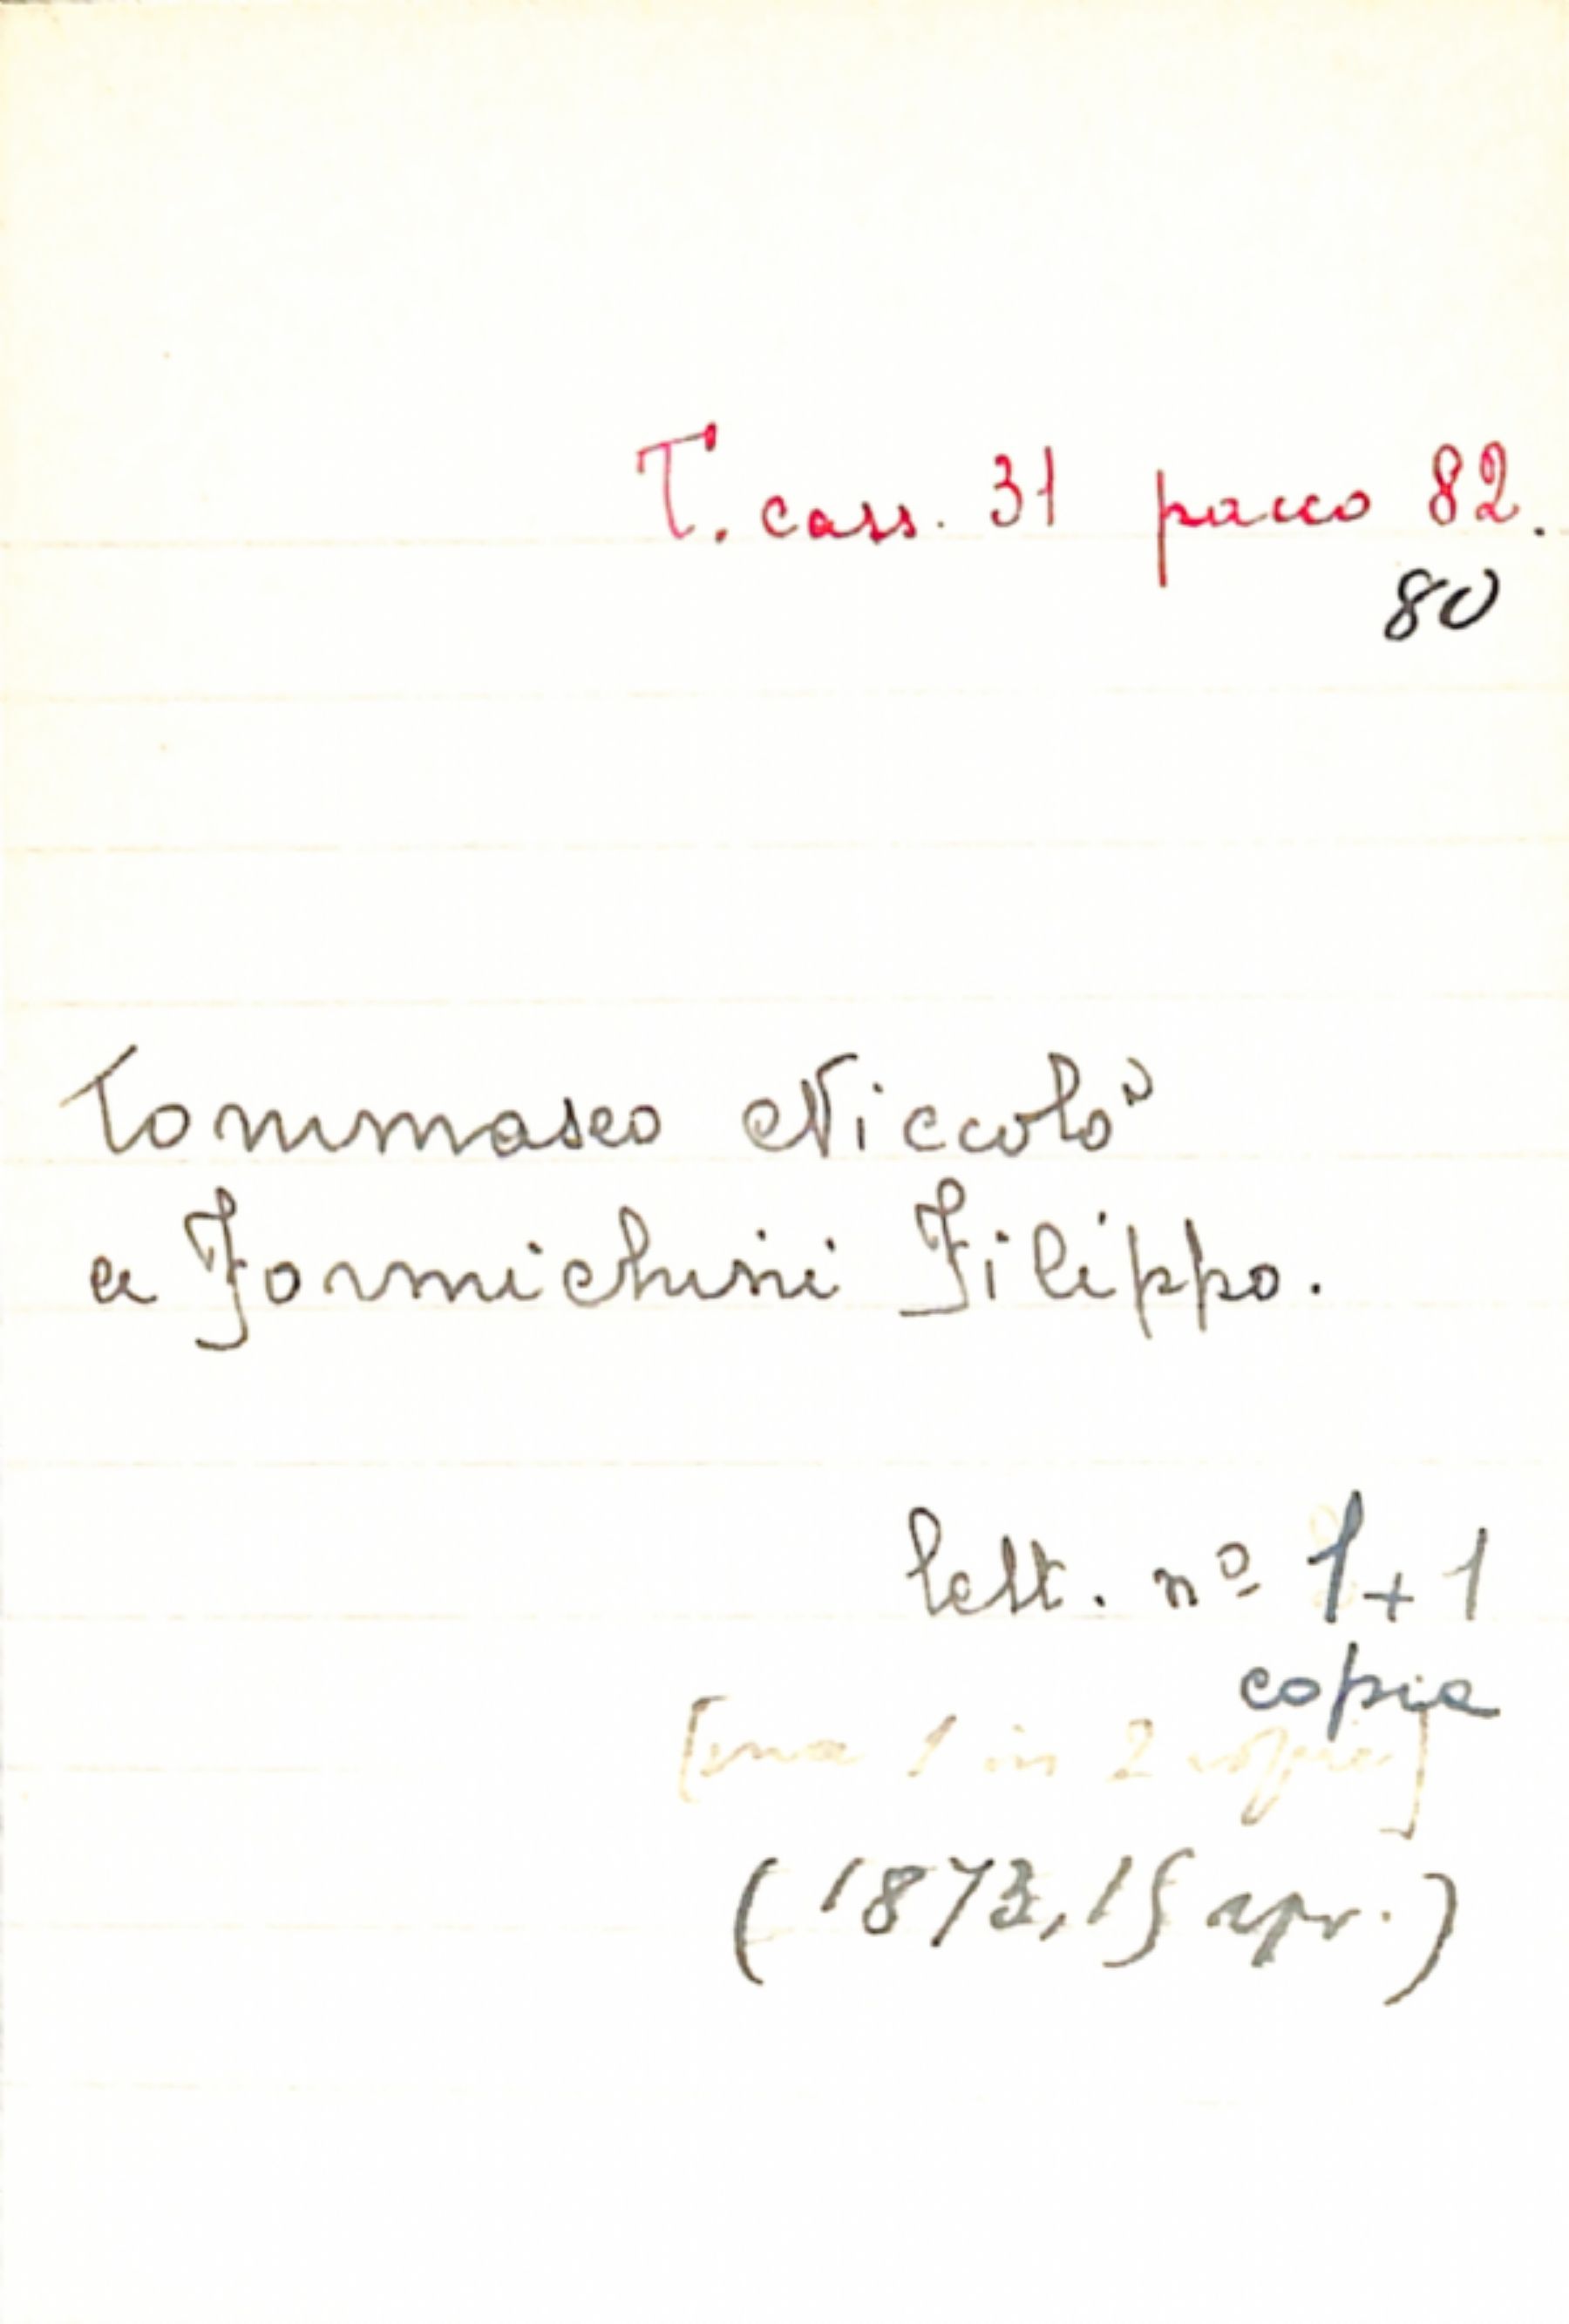 T. cass. 31 pacco 82.
80
Tommaseo Niccolò
a Formichini Filippo.
lett. nº 1+1
copia
[ma 1 in 2 copie]
(1873, 15 apr.)